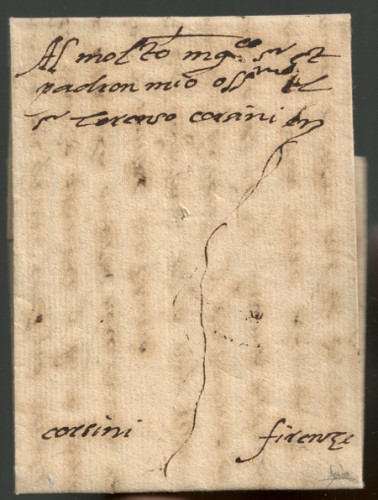 Al molto mg.co sr et
padron mio oss.mo il
sr lorenso corsini in
corsini firenze